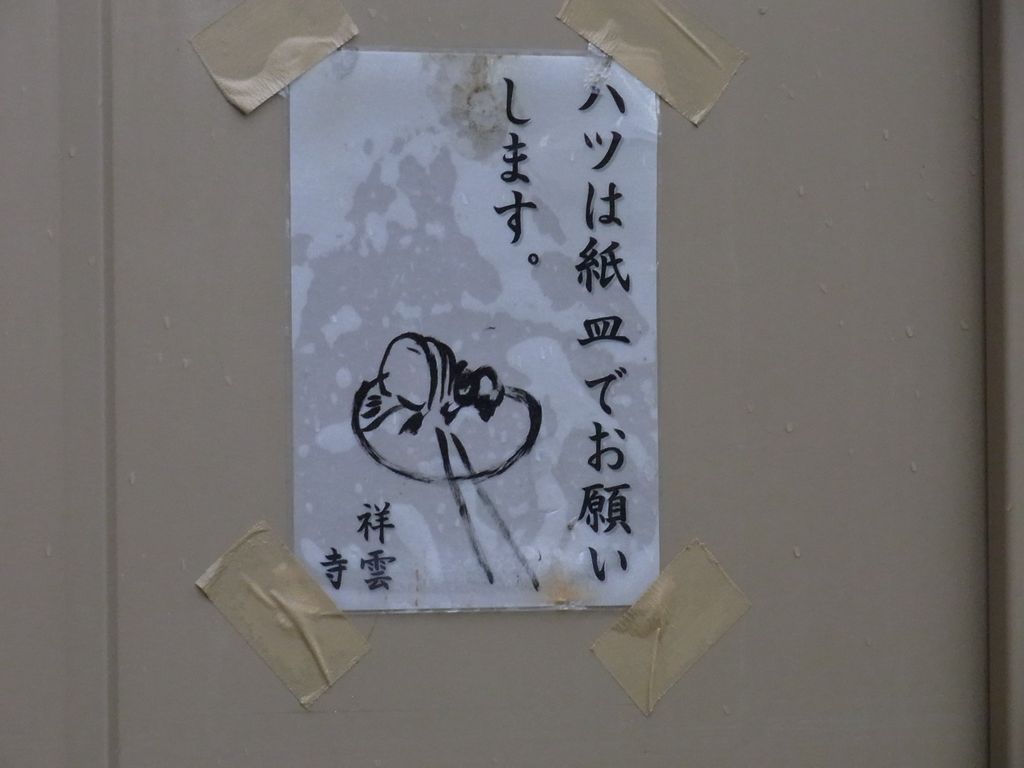 ハツは紙皿でお願い
します。
祥雲
寺